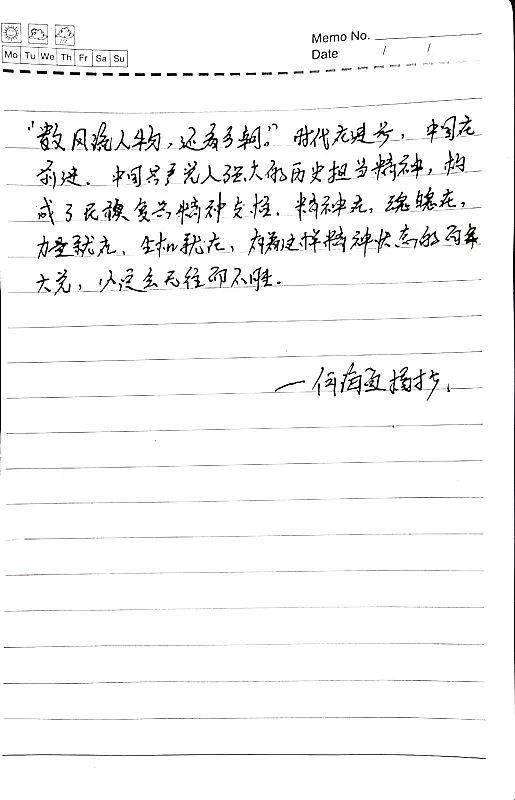 Memo No.
Mo Tu We Th Fr Sa Su
Date / /
"数风流人物，还看今朝。"时代在进步，中国在
前进．中国共产党人强大的历史担当精神，构
成了民族复兴精神支柱．精神在，魂魄在，
力量就在、生机就在，有着这样精神状态的百年
大党，必定会无往而不胜．
一 何 摘抄．